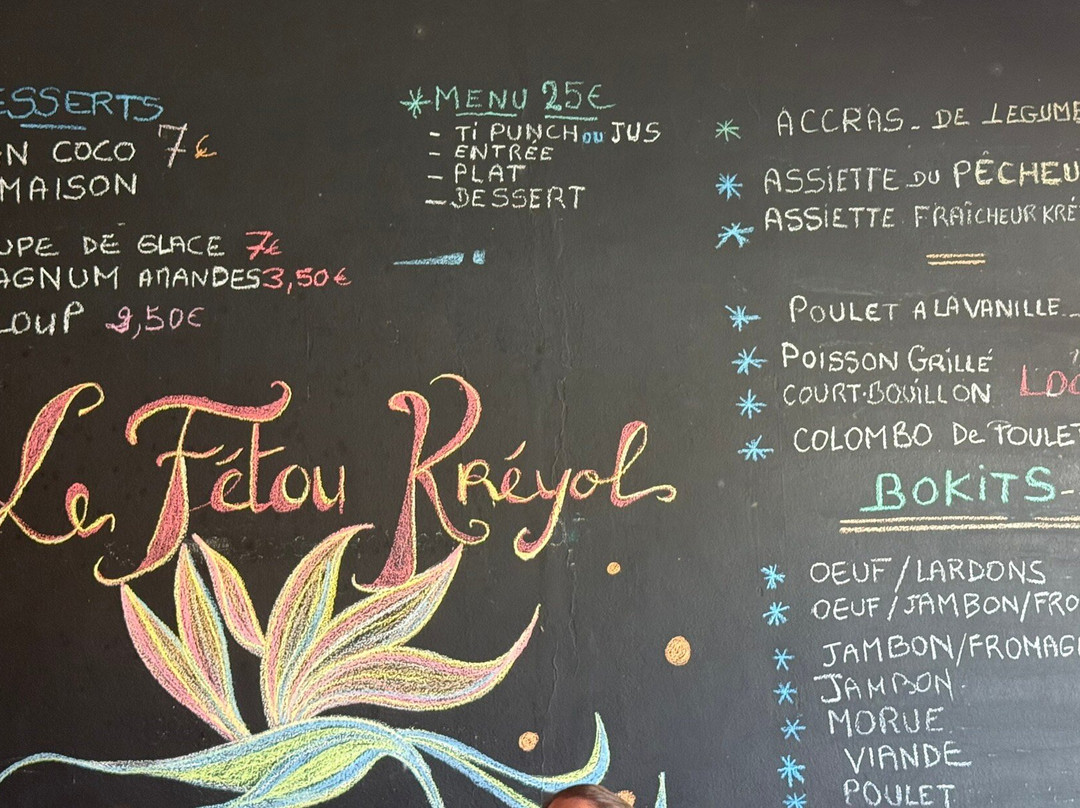 ESSERTS
N COCO 7€
MAISON
UPE DE GLACE 7€
AGNUM AMANDES 3,50€
LOUP 2,50€
*MENU 25€
- Ti PUNCH ou JUS
- ENTRÉE
- PLAT
- DESSERT
Le Fétou Kréyol
* ACCRAS - DE LEGUME
* ASSiETTE DU PÊCHEU
* ASSiETTE FRAÎCHEUR KRÉ
* POULET A LA VANiLLE
* POiSSON GRiLLÉ
* COURT-BOUiLLON
* COLOMBO De POULET
BOKiTS-
* OEUF/LARDONS
* OEUF/JAMBON/FRO
* JAMBON/FROMAG
* JAMBON
* MORUE
* ViANDE
* POULET